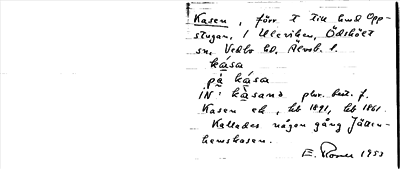 Kasen, förr t till hmd Opp-
stugan, i Ulleviken, Ödshult
sn, Vedbo hd, Älvsb. l.
kása
på kása
IN: kàsand phr. best. f.
Kasen ek, hb 1891, hb 1861.
Kallades någon gång Jätten-
hemskasen.
E. 1953